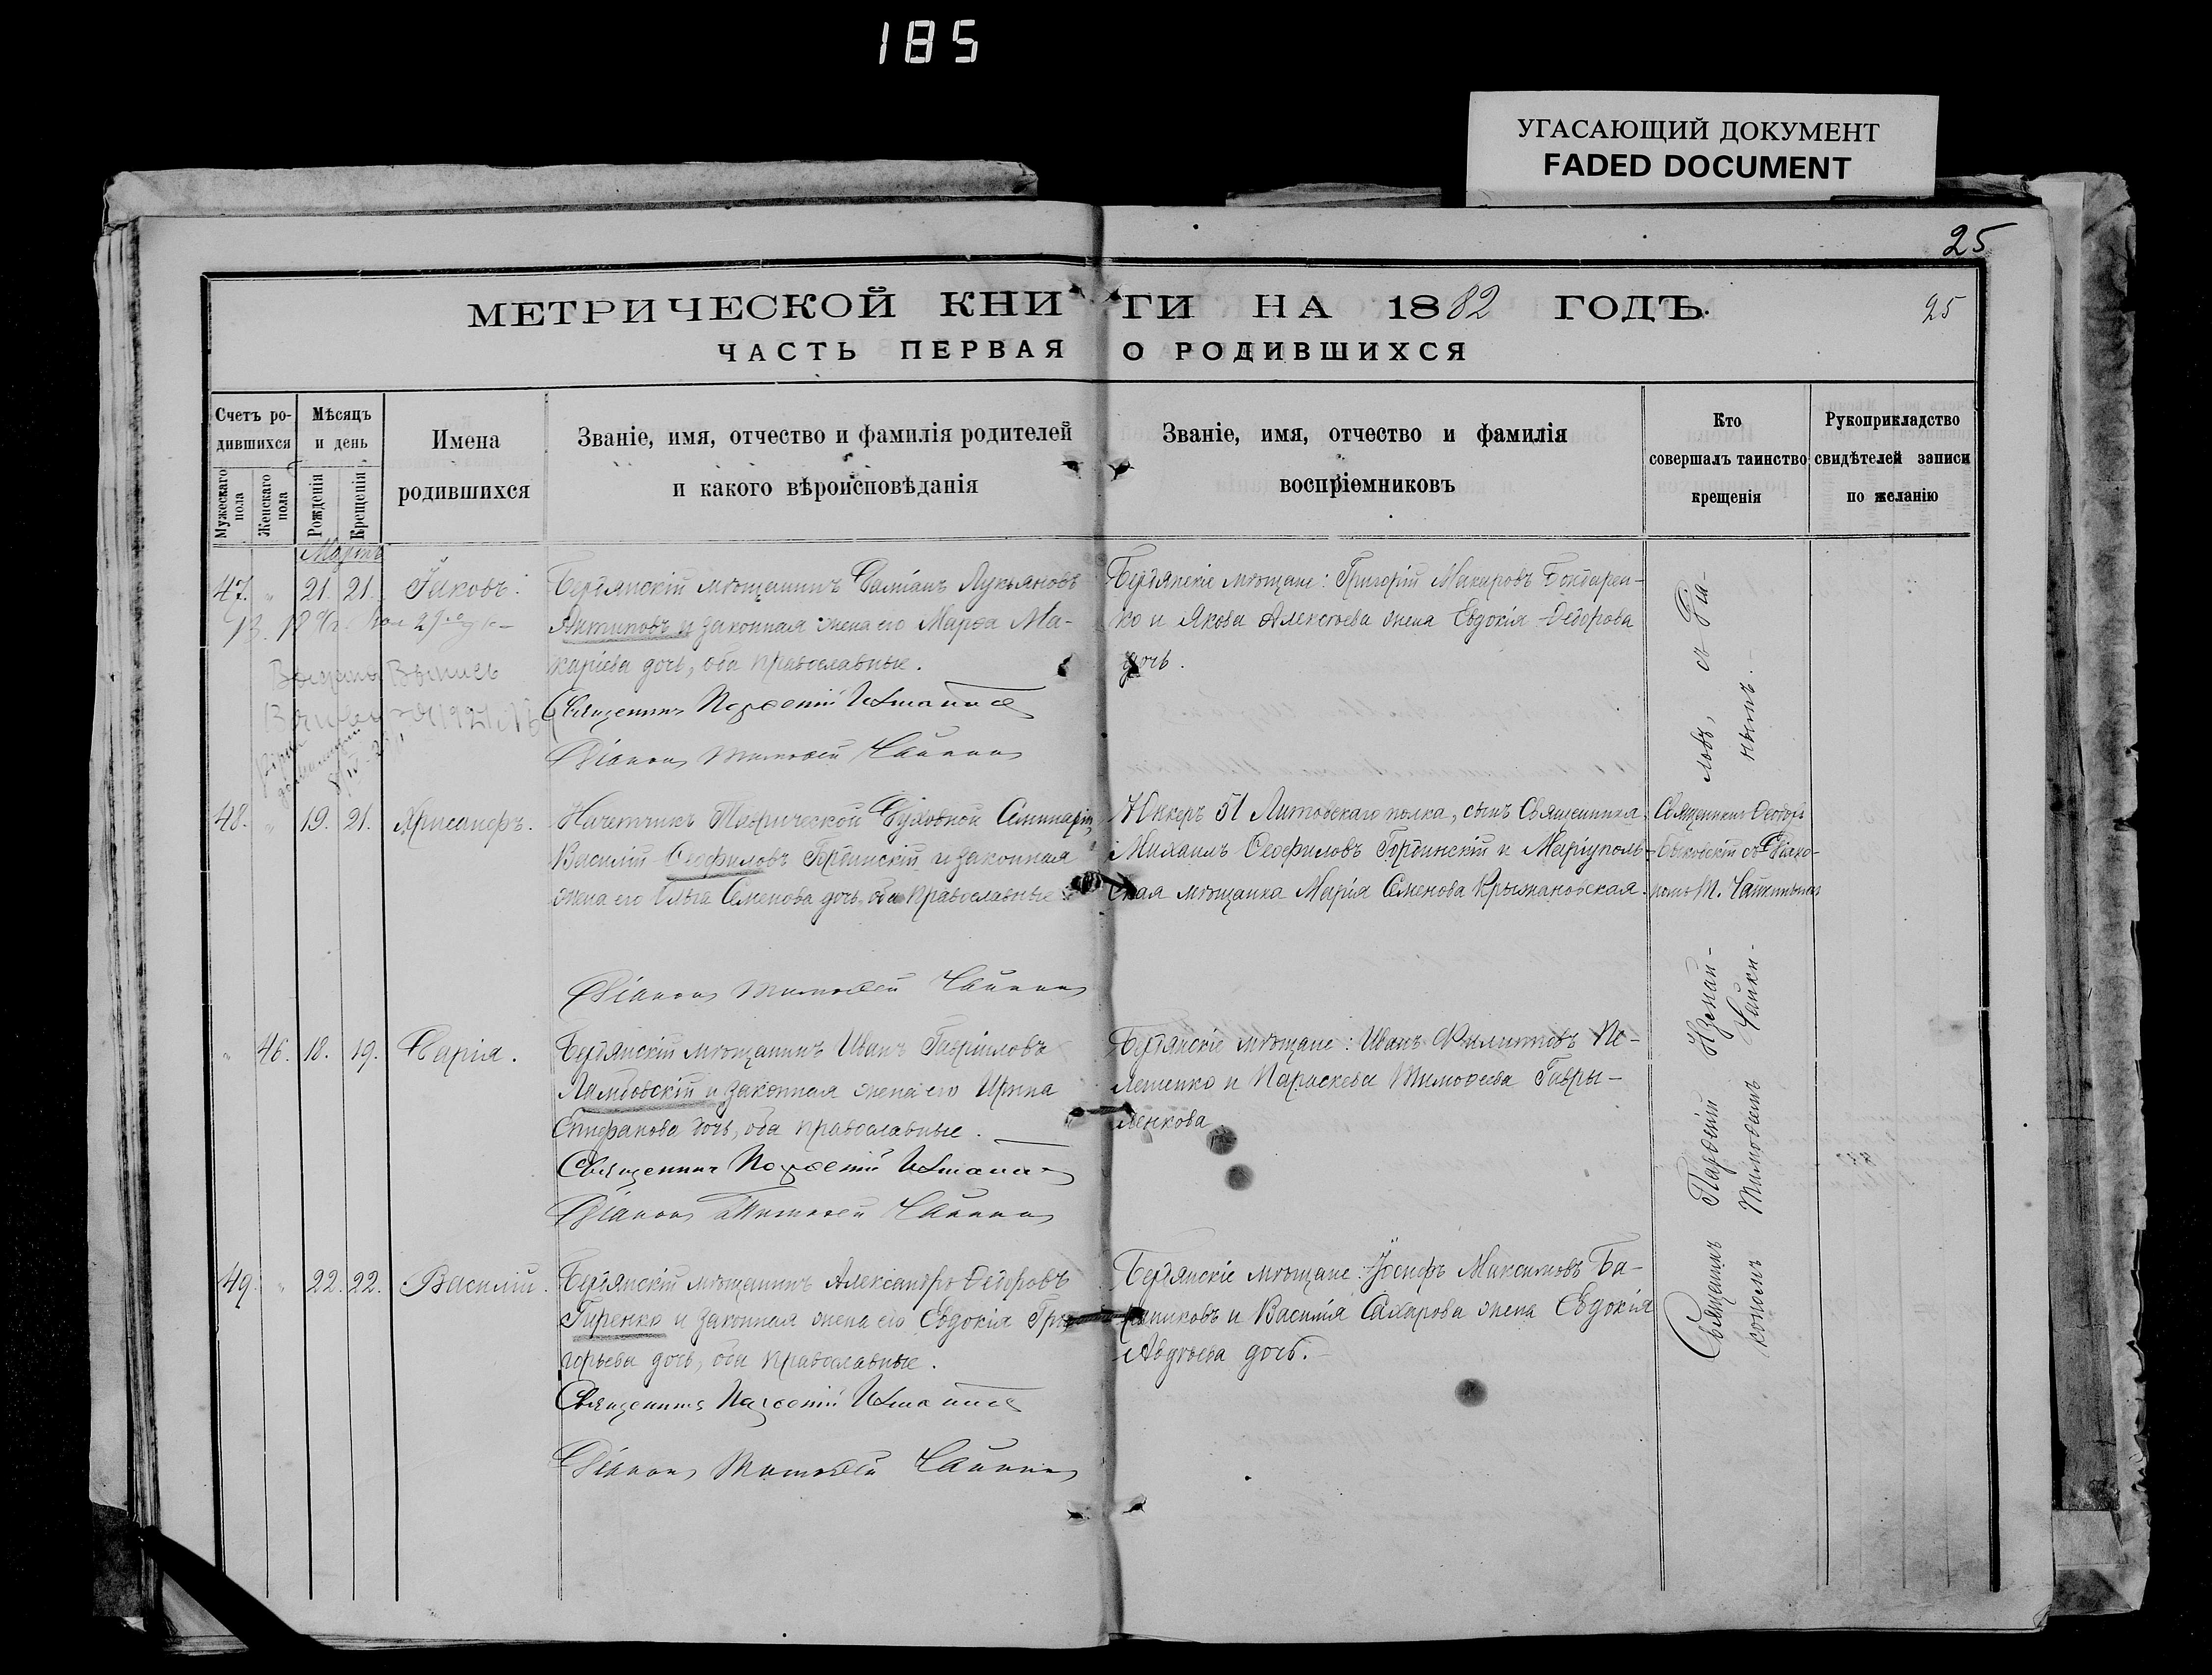 185
УГАСАЮЩИЙ ДОКУМЕНТ
FADED DOCUMENT
25
МЕТРИЧЕСКОЙ КНИГИ НА 1882 ГОДЪ.
25
ЧАСТЬ ПЕРВАЯ О РОДИВШИХСЯ
Счетъ ро-
дившихся
Мужескаго пола
Женскаго пола
Мѣсяцъ
и день
Рожденія
Крещенія
Имена
родившихся
Званіе, имя, отчество и фамилія родителей
и какого вѣроисповѣданія
Званіе, имя, отчество и фамилія
воспріемниковъ
Кто
совершалъ таинство
крещенія
Рукоприкладство
свидѣтелей записи
по желанію
Мартъ
47. " 21. 21. Іаковъ.
Бердянскій мѣщанинъ Даміанъ Лукьяновъ
Антиповъ и законная жена его Марѳа Ма-
каріева дочь, оба православные.
Священникъ Парѳеній
Діаконъ Тимоѳей Чайкинъ
Бердянскіе мѣщане: Григорій Макаровъ Бондарен-
ко и Якова Алексѣева жена Евдокія Ѳедорова
дочь.
Выдана Выпись
48. " 19. 21. Хрисанфъ.
Начетчикъ Таврической Духовной Семинаріи,
Василій Ѳеофиловъ Гординскій и законная
жена его Ольга Семенова дочь, оба православные
Діаконъ Тимоѳей Чайкинъ
Юнкеръ 51 Литовскаго полка, сынъ Священника,
Михаилъ Ѳеофиловъ Гординскій и Маріуполь-
ская мѣщанка Марія Семенова Крыжановская.
Священникъ Ѳеодоръ
Быковскій съ Діако-
номъ Т. Чайкинымъ
" 46. 18. 19. Дарія.
Бердянскій мѣщанинъ Иванъ Гавриловъ
и законная жена его Ирина
Епифанова дочь, оба православные.
Священникъ Парѳеній
Діаконъ Тимоѳей Чайкинъ
Бердянскіе мѣщане: Иванъ Филиповъ Пе-
лешенко и Параскева Тимоѳеева Гавры-
ленкова
49. " 22. 22. Василій.
Бердянскій мѣщанинъ Александръ Ѳедоровъ
Гиренко и законная жена его Евдокія Гри-
горьева дочь, оба православные.
Священникъ Парѳеній
Діаконъ Тимоѳей Чайкинъ
Бердянскіе мѣщане: Іосифъ Максимовъ Ба-
ранниковъ и Василія Сахарова жена Евдокія
Авдѣева дочь.
Священникъ Парѳеній Измаи-
ловъ, съ Діа-
кономъ Тимоѳеемъ Чайки-
нымъ.